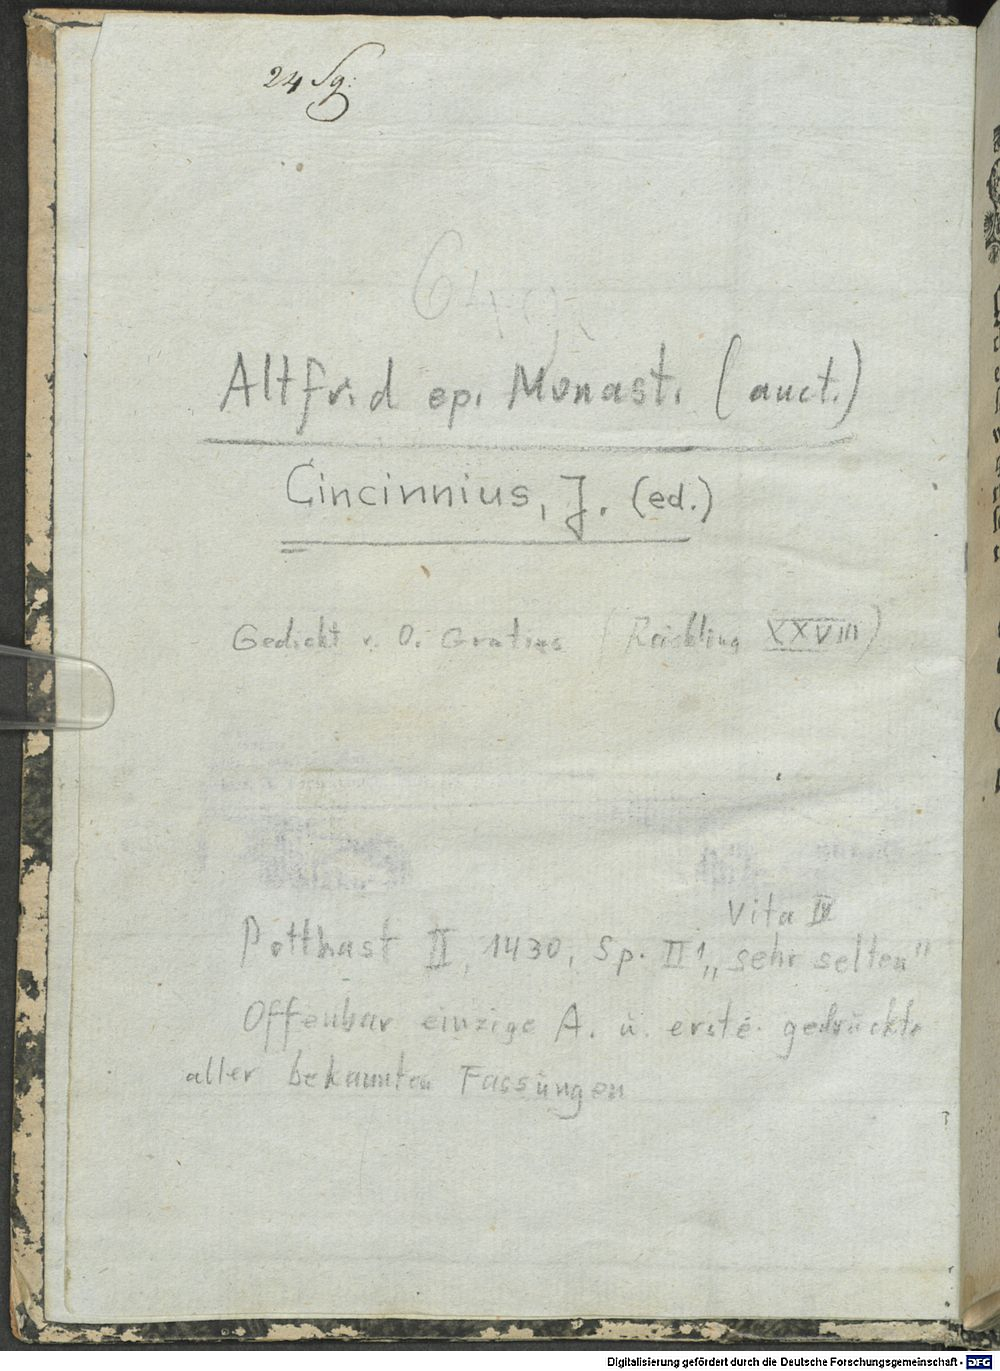 24 Sg.
Altfrid ep. Monast. (auct.)
Cincinnius, J. (ed.)
Gedicht v. O. Gratius (Reichling XXVIII)
Vita IV
Potthast II, 1430, Sp. II¹ „sehr selten"
Offenbar einzige A. u. erste gedruckte
aller bekannten Fassungen
Digitalisierung gefördert durch die Deutsche Forschungsgemeinschaft - DFG